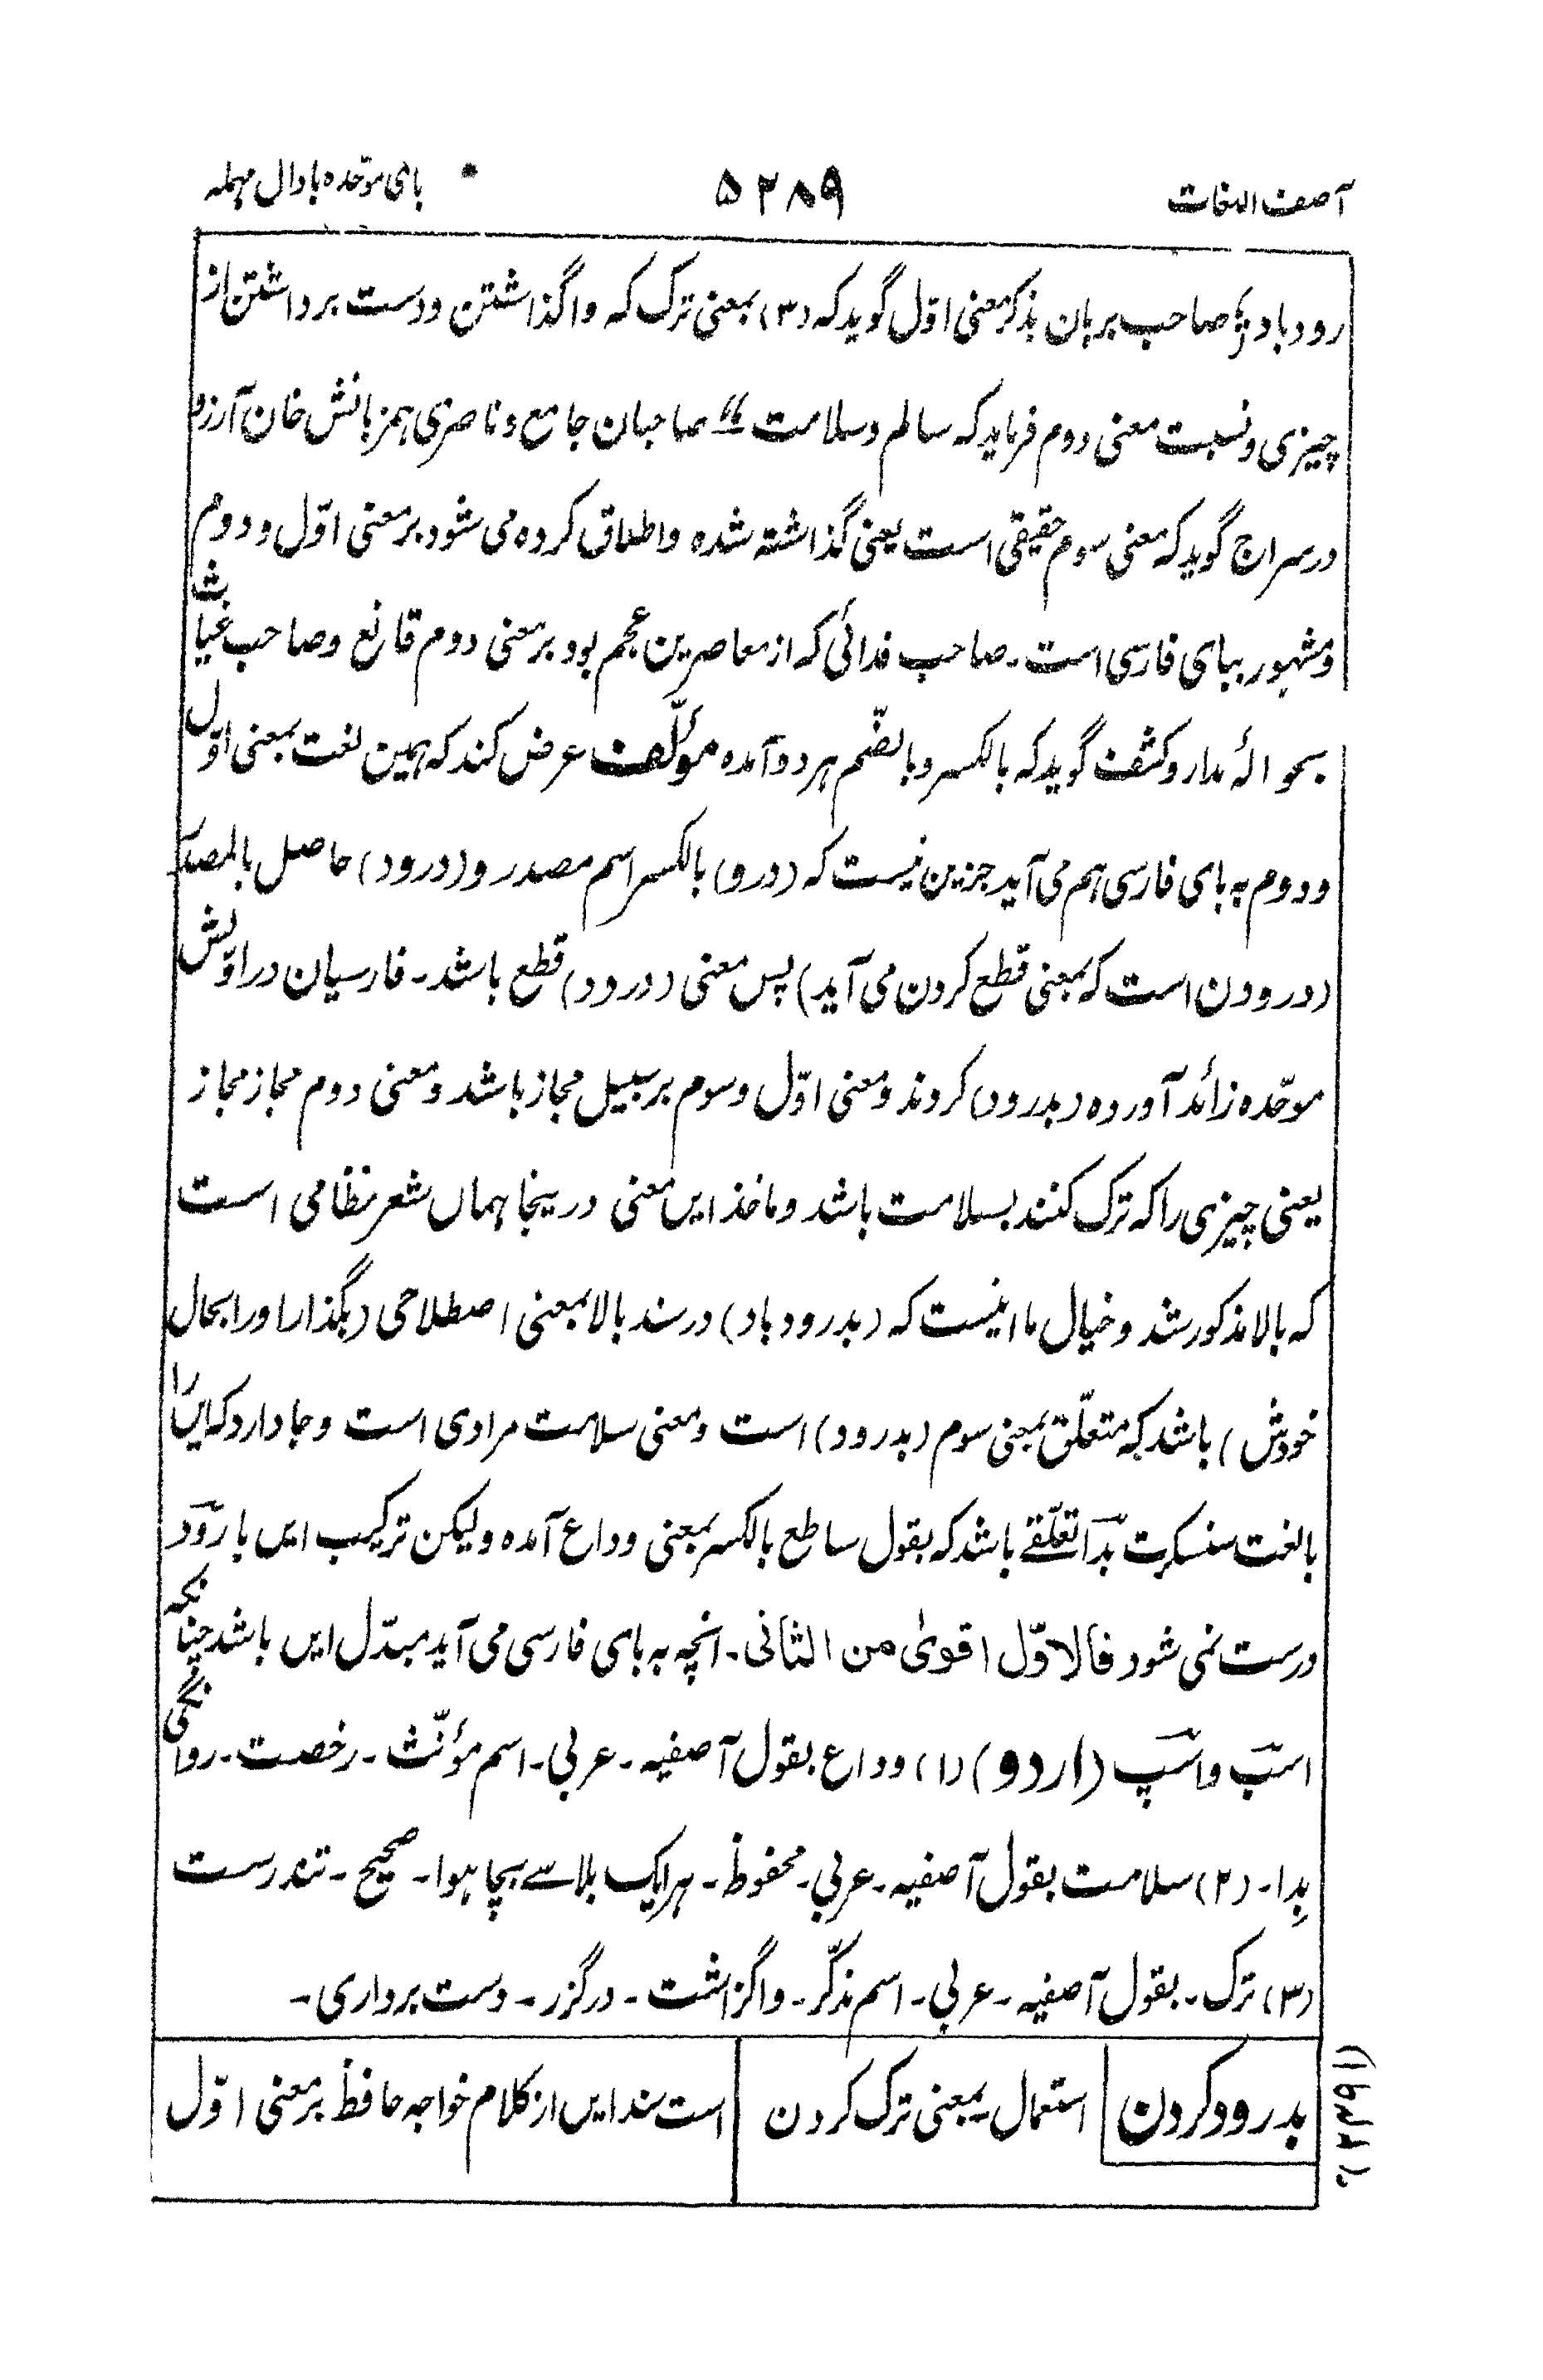 آصف اللغات
۵۲۸۹
بای موحّده با دال مہملہ
رود باد؎ صاحب برہان بذکر معنی اوّل گوید کہ (۳) بمعنی ترک کہ واگذاشتن ودست برداشتن از
چیزی ونسبت معنی دوم فرماید کہ سالم وسلامت ؎ صاحبان جامع وناصری ہمزبانش خان آرزو
درسراج گوید کہ معنی سوم حقیقی است یعنی گذاشتہ شدہ واطلاق کردہ می شود برمعنی اوّل ودوم
ومشہور ببای فارسی است۔ صاحب فدائی کہ از معاصرین عجم بود برمعنی دوم قانع وصاحب غیاث
بحوالۂ مدار وکشف گوید کہ بالکسر وبالضّم ہردو آمدہ مؤلّف عرض کند کہ ہمین لغت بمعنی اوّل
ودوم بہ بای فارسی ہم می آید جزین نیست کہ (درو) بالکسر اسم مصدر و(درود) حاصل بالمصدر
(درودن است کہ بمعنی قطع کردن می آید) پس معنی (درود) قطع باشد۔ فارسیان در اوّلش
موحّدہ زائد آوردہ (بدرود) کردند ومعنی اوّل وسوم برسبیل مجاز باشد ومعنی دوم مجاز مجاز
یعنی چیزی را کہ ترک کنند بسلامت باشد وماخذ ایں معنی درینجا ہماں شعر نظامی است
کہ بالا مذکور شد وخیال ما اینست کہ (بدرود باد) در سند بالا بمعنی اصطلاحی (بگذار اورا بحال
خودش) باشد کہ متعلّق بمعنی سوم (بدرود) است ومعنی سلامت مرادی است وجا دارد کہ ایں را
بالغت سنسکرت بدا تعلّقے باشد کہ بقول ساطع بالکسر بمعنی وداع آمدہ ولیکن ترکیب ایں با رود
درست نمی شود فالاوّل اقویٰ من الثانی۔ انچہ بہ بای فارسی می آید مبدّل ایں باشد چنانکہ
اسب واسپ (اردو) (۱) وداع بقول آصفیہ۔ عربی۔ اسم مؤنّث۔ رخصت۔ روانگی
بِدا۔ (۲) سلامت بقول آصفیہ۔ عربی۔ محفوظ۔ ہر ایک بلا سے بچا ہوا۔ صحیح۔ تندرست
(۳) ترک۔ بقول آصفیہ۔ عربی۔ اسم مذکّر۔ واگزاشت۔ درگزر۔ دست برداری۔
بدرود کردن
استعمال بمعنی ترک کردن
است سند ایں از کلام خواجہ حافظ برمعنی اوّل